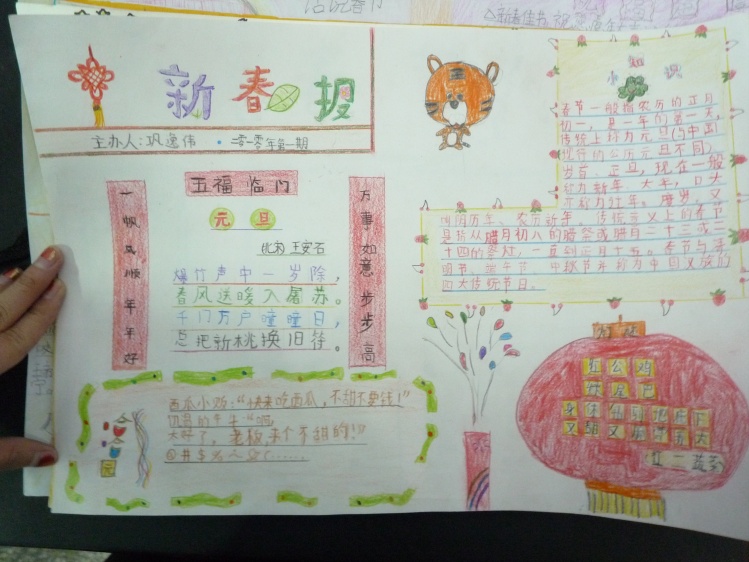 新春报
主办人:巩逸伟·二零一零年第一期
五福临门
一帆风顺年年好
万事如意步步高
元旦
北宋 王安石
爆竹声中一岁除,
春风送暖入屠苏。
千门万户曈曈日,
总把新桃换旧符。
西瓜小鸡:“快来吃西瓜,不甜不要钱!”
饥渴的牛牛:“啊,
太好了,老板,来个不甜的!”
小知识
春节一般指农历的正月
初一,是一年的第一天,
传统上称为元旦(与中国
现行的公历元旦不同)、
岁首、正旦,现在一般
称为新年、大年,口头
又称为过年。
阴阳历年、农历新年。传统意义上的春节
是指从腊月初八的腊祭或腊月二十三或二
十四的祭灶,一直到正月十五。春节与清
明节、端午节、中秋节并称为中国汉族的
四大传统节日。
灯谜
红公鸡
绿尾巴
身体
又甜又
打一蔬菜